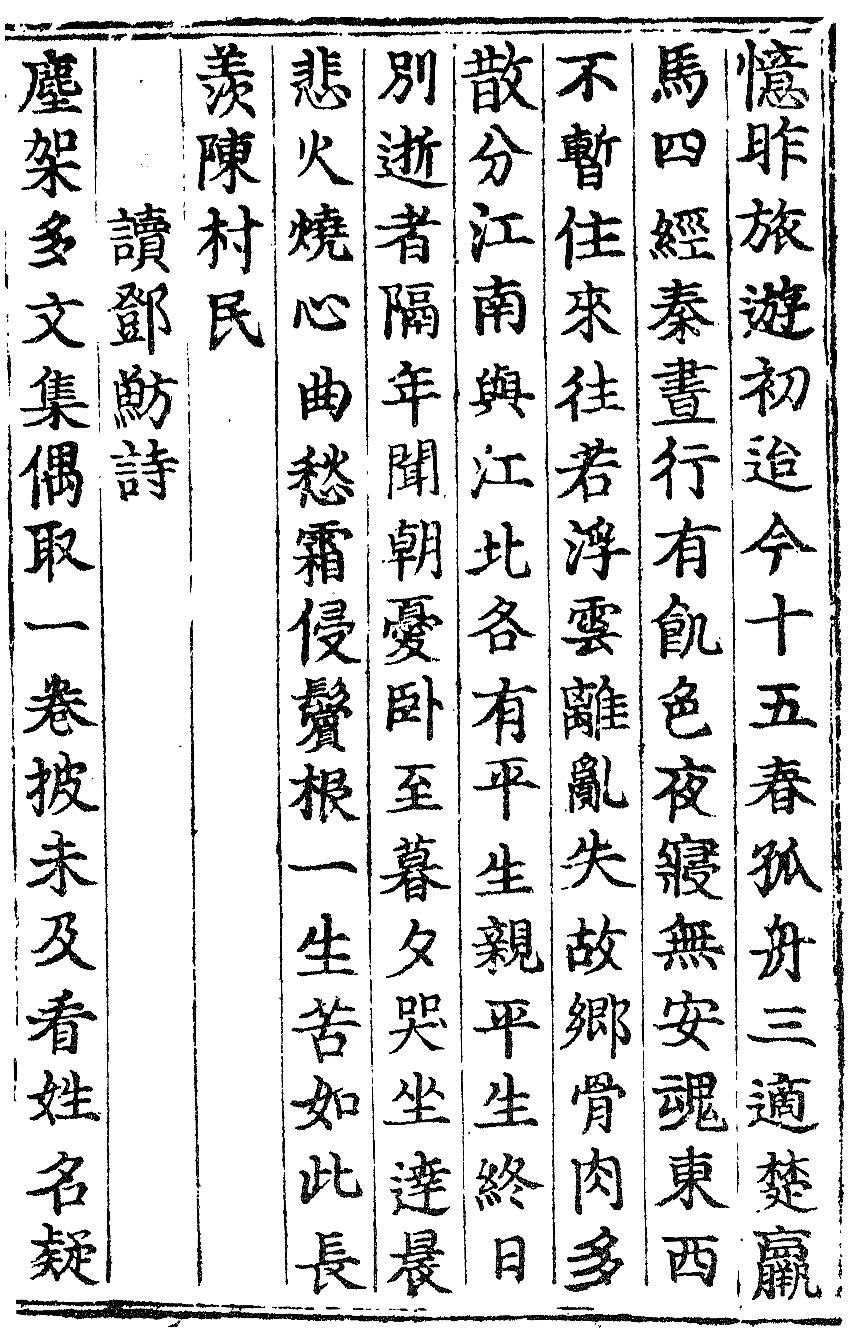 憶昨旅遊初迨今十五春孤舟三適楚羸
馬四經秦晝行有飢色夜寢無安魂東西
不暫住來往若浮雲離亂失故鄉骨肉多
散分江南與江北各有平生親平生終日
別逝者隔年聞朝憂卧至暮夕哭坐達晨
悲火燒心曲愁霜侵鬢根一生苦如此長
羨陳村民
讀鄧魴詩
塵架多文集偶取一卷披未及看姓名疑